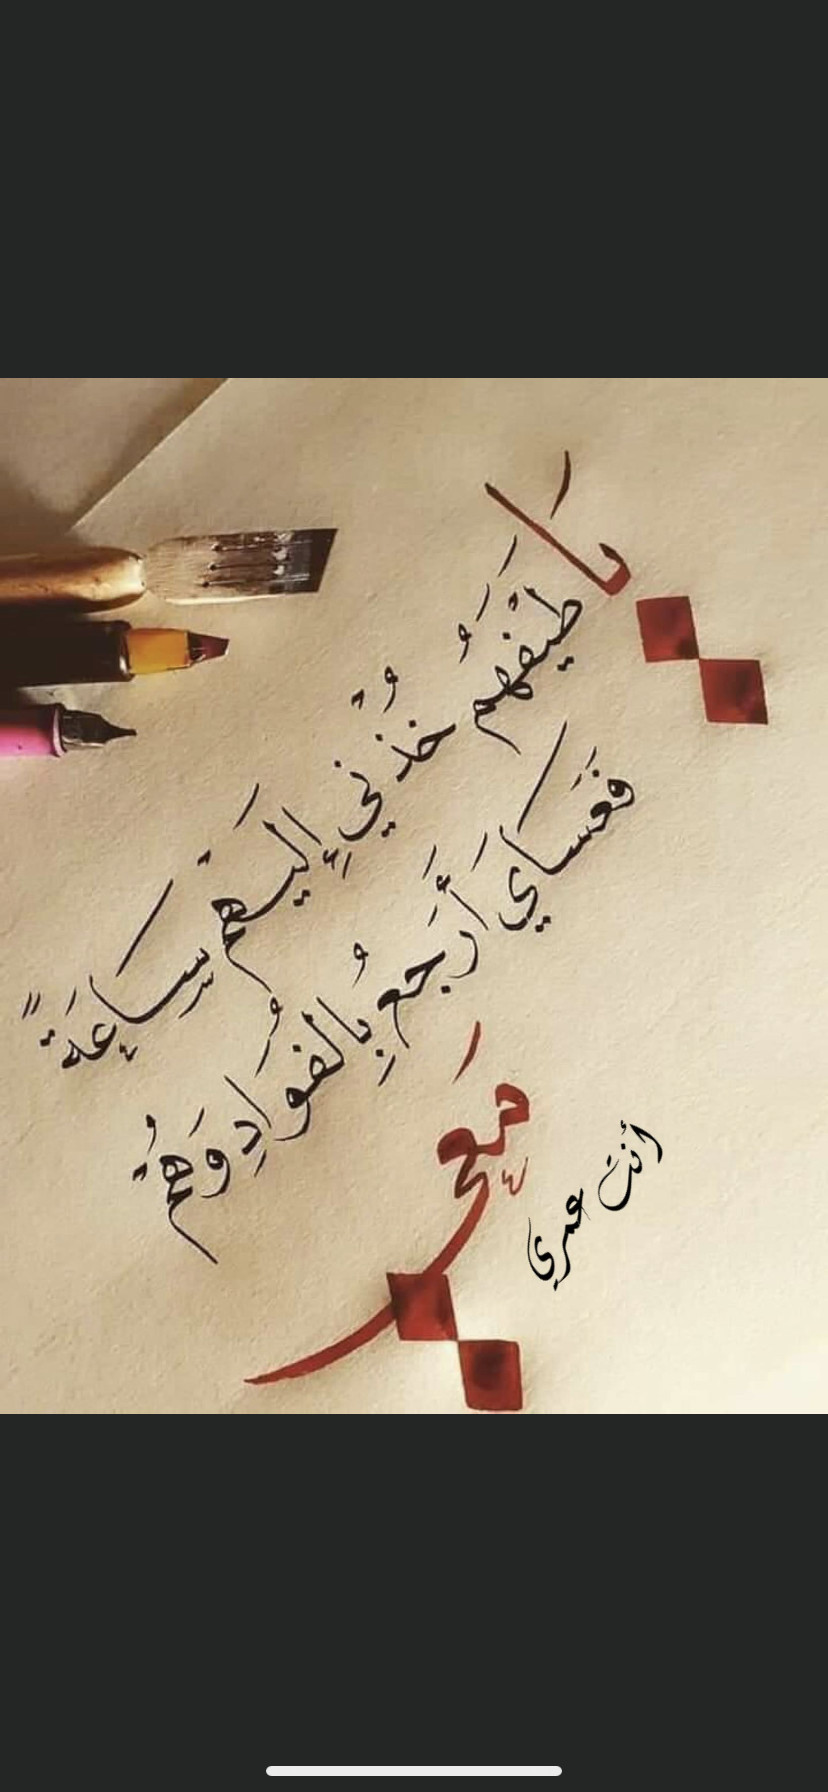 يَا طَيْفَهُم خُذْنِي إِلَيْهِم سَاعَةً
فَعَسَايَ أَرجعُ بِالفُوَادِ وَهُمْ
مَعِي
أنتَ عمري